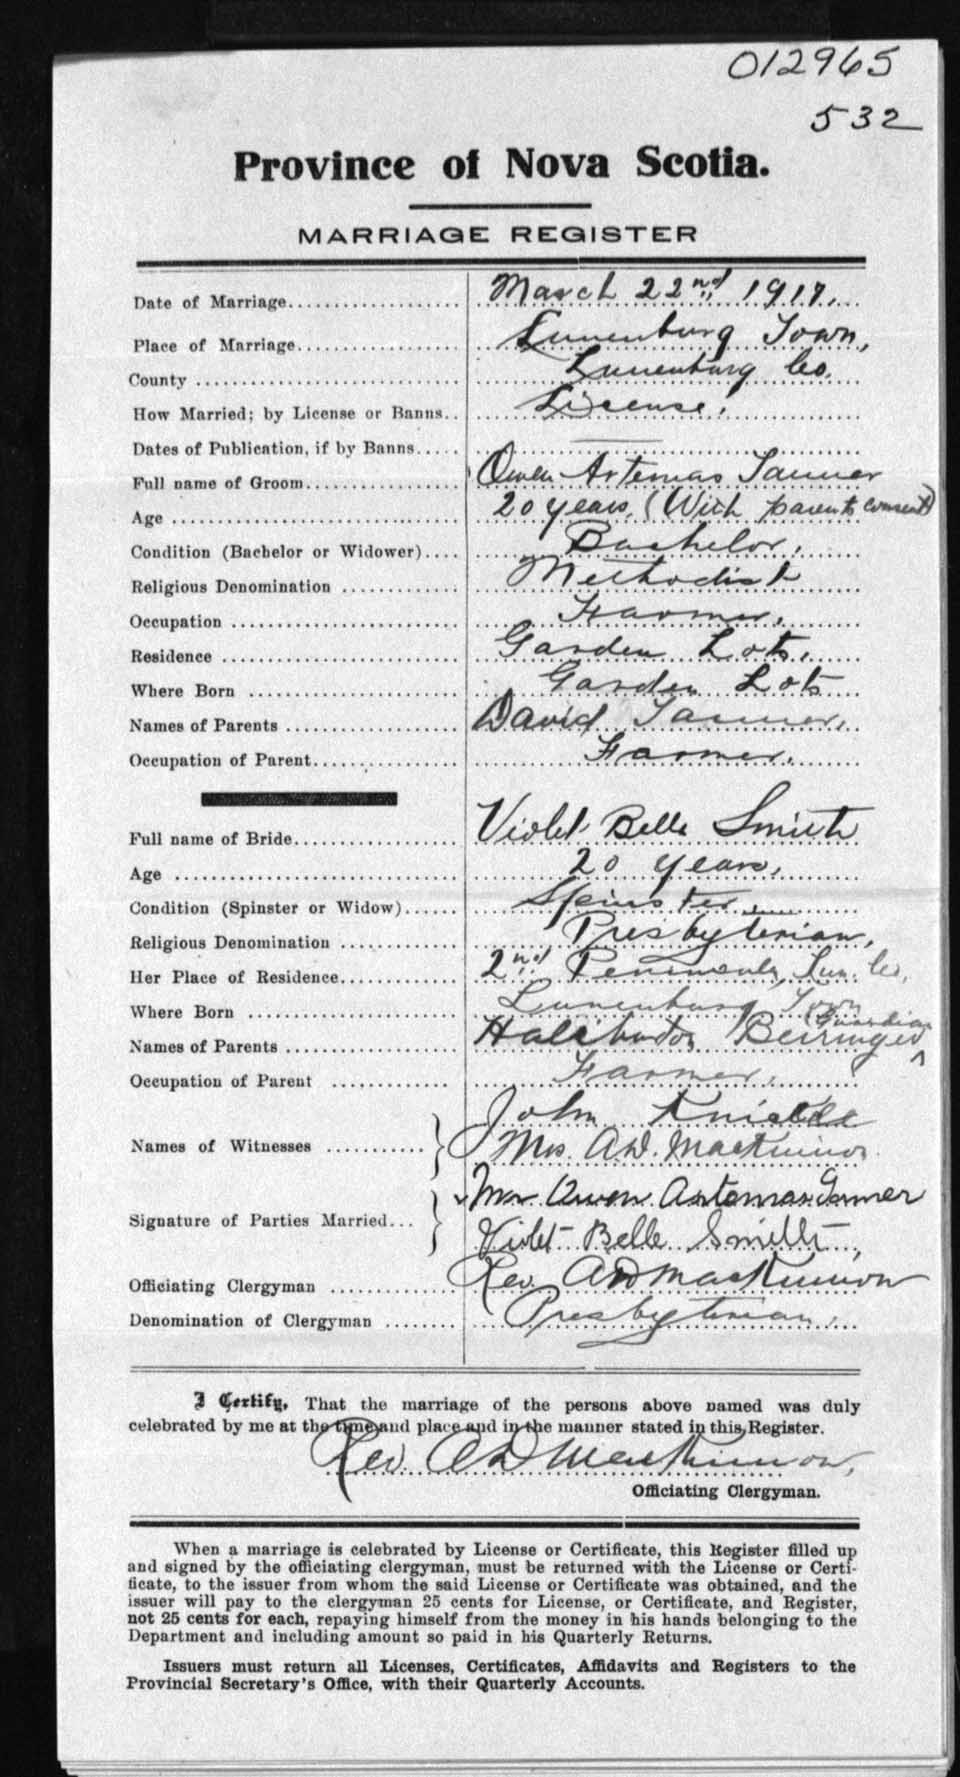 012965
532
Province of Nova Scotia.
MARRIAGE REGISTER
Date of Marriage.................... March 22nd, 1917.
Place of Marriage................... Lunenburg Town,
County .............................. Lunenburg Co.
How Married; by License or Banns.. License.
Dates of Publication, if by Banns.....
Full name of Groom................. Owen Artemas Tanner
Age ................................. 20 years, (With parents consent)
Condition (Bachelor or Widower).... Bachelor,
Religious Denomination ............. Methodist
Occupation .......................... Farmer,
Residence ........................... Garden Lots,
Where Born ........................ Garden Lots
Names of Parents ................... David Tanner,
Occupation of Parent................ Farmer.
Full name of Bride................... Violet Belle Smith
Age ................................. 20 years,
Condition (Spinster or Widow)...... Spinster
Religious Denomination ............. Presbyterian,
Her Place of Residence............. 2nd Peninsula, Lun. Co,
Where Born ........................ Lunenburg Town
Names of Parents ................... Haliburton Beringer ^ (Guardian
Occupation of Parent ............. Farmer,
Names of Witnesses ........... John
Mrs. A.D. MacKinnon
Signature of Parties Married... Mr. Owen Artemas Tanner
Violet Belle Smith,
Officiating Clergyman ............. Rev. A D MacKinnon
Denomination of Clergyman ........ Presbyterian,
I Certify, That the marriage of the persons above named was duly
celebrated by me at the time and place and in the manner stated in this Register.
Rev. A D MacKinnon,
Officiating Clergyman.
When a marriage is celebrated by License or Certificate, this Register filled up
and signed by the officiating clergyman, must be returned with the License or Certi-
ficate, to the issuer from whom the said License or Certificate was obtained, and the
issuer will pay to the clergyman 25 cents for License, or Certificate, and Register,
not 25 cents for each, repaying himself from the money in his hands belonging to the
Department and including amount so paid in his Quarterly Returns.
Issuers must return all Licenses, Certificates, Affidavits and Registers to the
Provincial Secretary's Office, with their Quarterly Accounts.